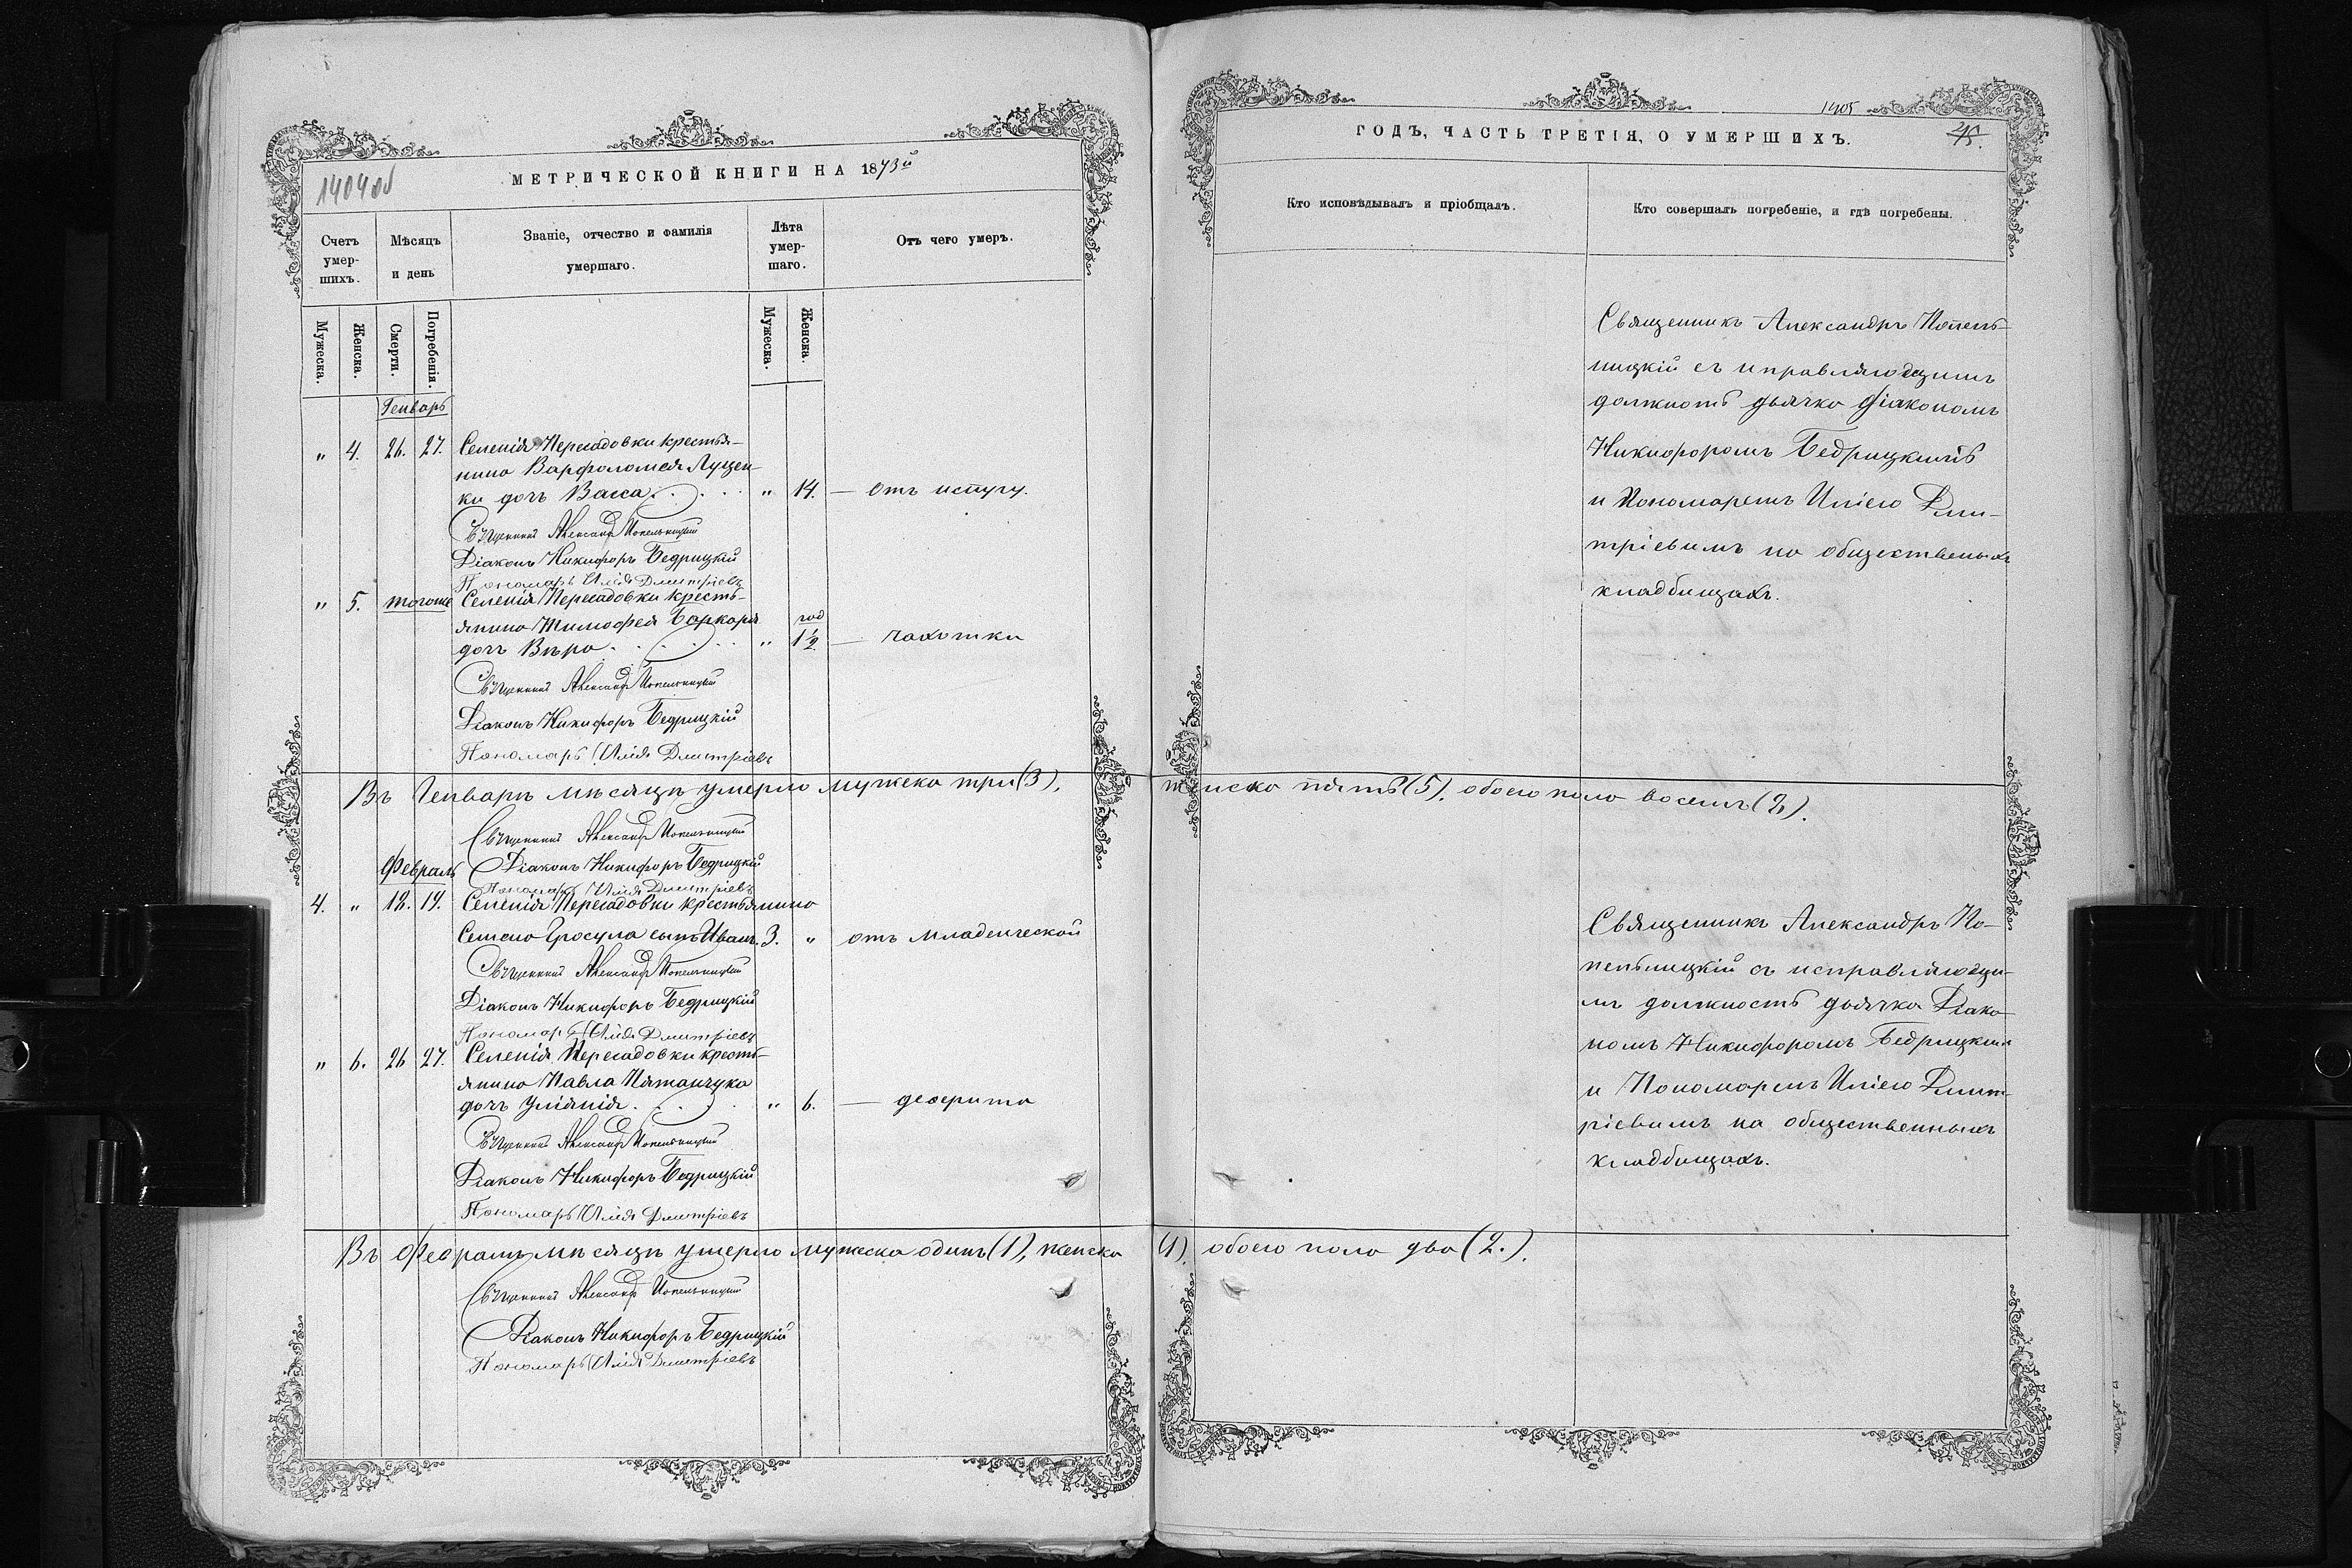 1404об
МЕТРИЧЕСКОЙ КНИГИ НА 1873й
Счетъ умер-шихъ.
Мѣсяцъ и день
Званіе, отчество и фамилія умершаго.
Лѣта умер-шаго.
Отъ чего умеръ.
Мужеска.
Женска.
Смерти.
Погребенія.
Мужеска.
Женска.
Генварь
" 4. 26. 27. Селенія Пересадовки крестья-
нина Варфоломея Луцен-
ки дочь Васса " 14. — отъ испугу.
Священникъ Александръ Попельницкій
Діаконъ Никифоръ Бедрицкій
Пономарь Илія Дмитріевъ
" 5. тогоже Селенія Пересадовки кресть-
янина Тимофея Баркаря год
дочь Вѣра " 1½ — чахотки
Священникъ Александръ Попельницкій
Діаконъ Никифоръ Бедрицкій
Пономарь Илія Дмитріевъ
Въ Генварѣ мѣсяцѣ умерло мужеска три (3),
Священникъ Александръ Попельницкій
Февраль Діаконъ Никифоръ Бедрицкій
Пономарь Илія Дмитріевъ
4. " 18. 19. Селенія Пересадовки крестьянина
Семена Гросула сынъ Иванъ. 3. " отъ младенческой
Священникъ Александръ Попельницкій
Діаконъ Никифоръ Бедрицкій
Пономарь Илія Дмитріевъ
" 6. 26 27. Селенія Пересадовки кресть-
янина Павла Пятанчука
дочь Уліянія " 6. —
Священникъ Александръ Попельницкій
Діаконъ Никифоръ Бедрицкій
Пономарь Илія Дмитріевъ
Въ Февралѣ мѣсяцѣ умерло мужеска одинъ (1), женска
Священникъ Александръ Попельницкій
Діаконъ Никифоръ Бедрицкій
Пономарь Илія Дмитріевъ
1405
ГОДЪ, ЧАСТЬ ТРЕТІЯ, О УМЕРШИХЪ.
Кто исповѣдывалъ и пріобщалъ.
Кто совершалъ погребеніе, и гдѣ погребены.
Священникъ Александръ Попель-
ницкій съ исправляющимъ
должность дьячка Діакономъ
Никифоромъ Бедрицкимъ
и Пономаремъ Иліею Дми-
тріевымъ на общественыхъ
кладбищахъ.
женска пять (5). обоего пола восемь (8).
Священникъ Александръ По-
пельницкій съ исправляющи-
мъ должность дьячка Діако
номъ Никифоромъ Бедрицким
и Пономаремъ Иліею Дмит-
ріевымъ на общественныхъ
кладбищахъ.
(1). обоего пола два (2.).